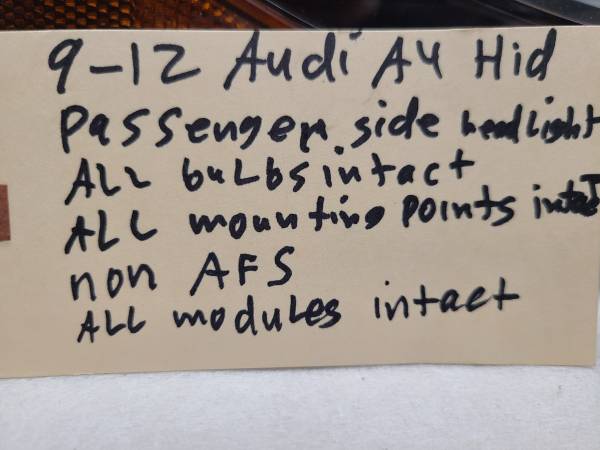 9-12 Audi A4 Hid
Passenger side headlight
ALL bulbs intact
ALL mounting points intact
non AFS
ALL modules intact